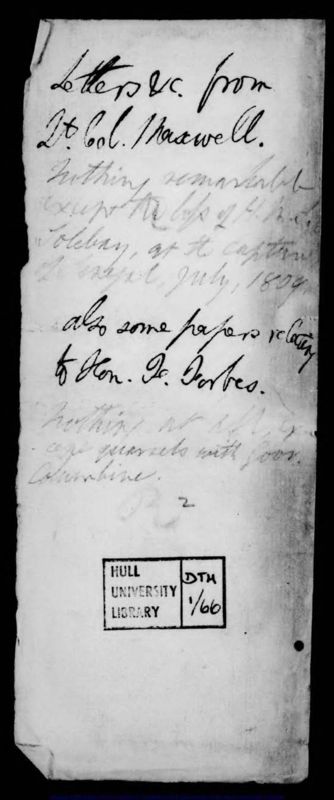 Letters &c. from
Lt. Col. Maxwell.
Nothing remarkable
except the loss of H. M. S.
Solebay, at the capture
of Senegal, July, 1809.
also some papers relating
to Hon. F. Forbes.
Nothing at all, ex-
cept quarrels with Gov.
Columbine.
2
HULL
UNIVERSITY
LIBRARY
DTH
1/66